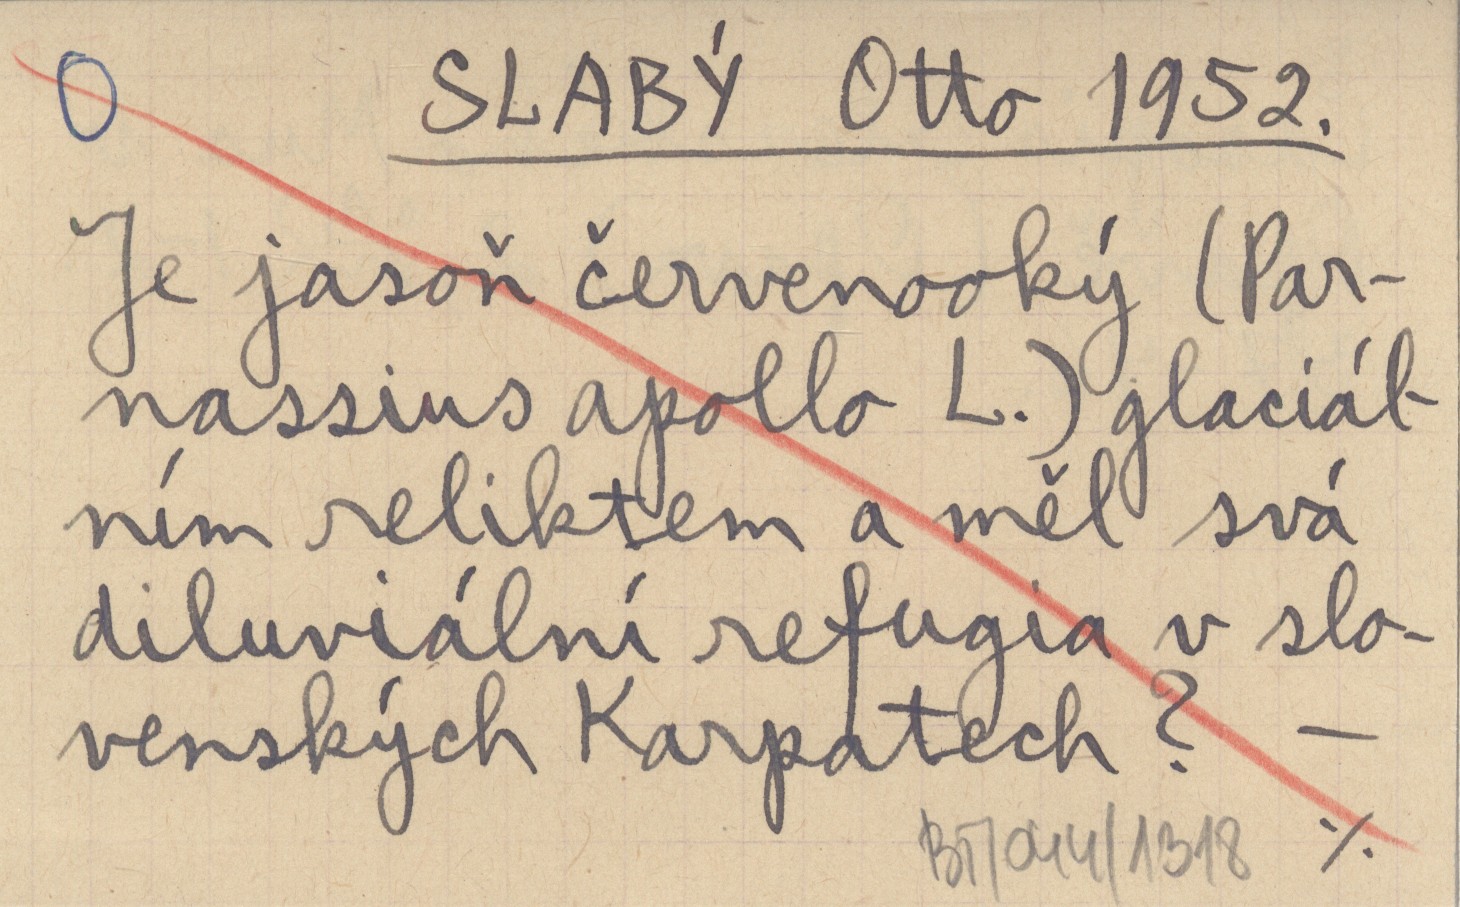 O SLABÝ Otto 1952.
Je jasoň červenooký (Par-
nassius apollo L.) glaciál-
ním reliktem a měl svá
diluviální refugia v slo-
venských Karpatech? —
BT/044/1318 ./.